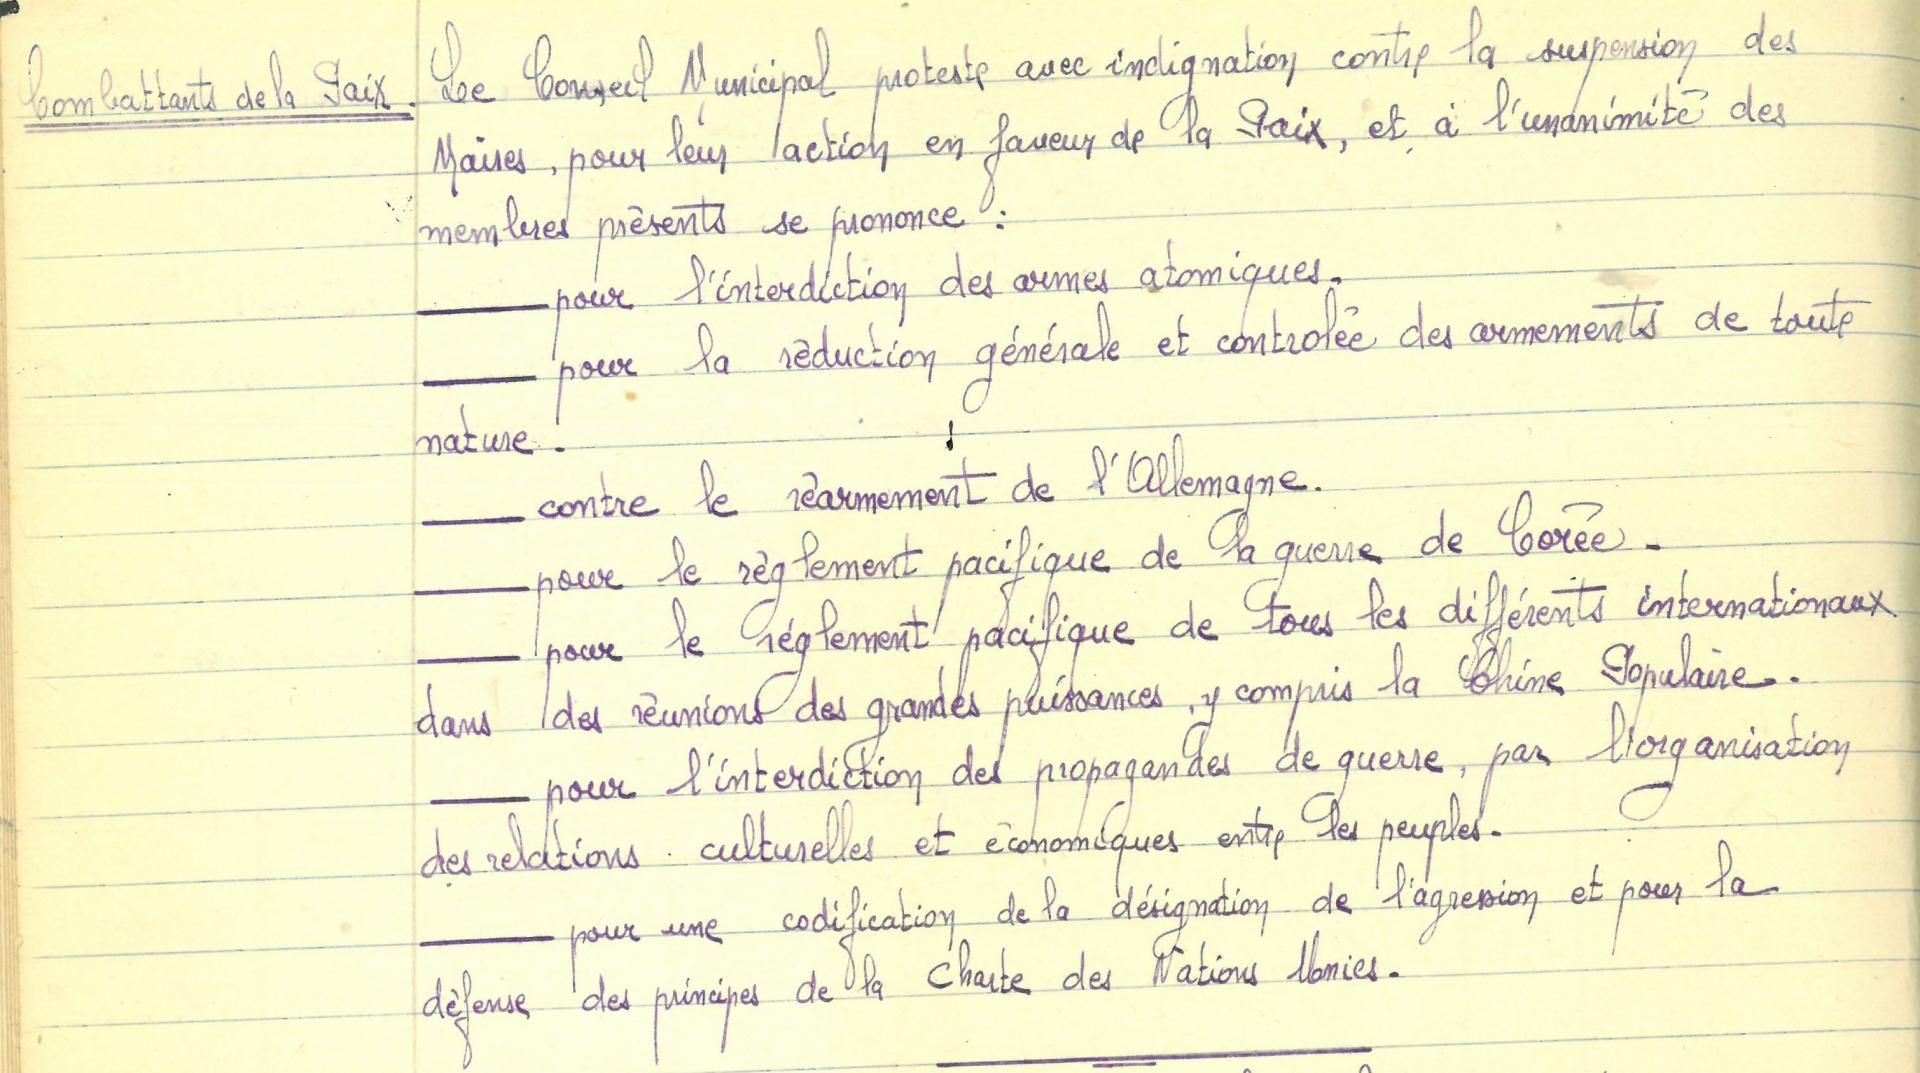 Combattants de la Paix.
Le Conseil Municipal proteste avec indignation contre la suspension des
Maires, pour leur action en faveur de la Paix, et à l'unanimité des
membres présents se prononce :
____ pour l'interdiction des armes atomiques.
____ pour la réduction générale et controlée des armements de toute
nature.
____ contre le réarmement de l'Allemagne.
____ pour le règlement pacifique de la guerre de Corée.
____ pour le réglement pacifique de tous les différents internationaux
dans des réunions des grandes puissances, y compris la Chine Populaire.
____ pour l'interdiction des propagandes de guerre, par l'organisation
des relations culturelles et économiques entre les peuples.
____ pour une codification de la désignation de l'agression et pour la
défense des principes de la Charte des Nations Unies.